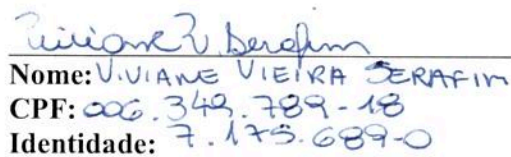 Viviane V. Serafim
Nome: VIVIANE VIEIRA SERAFIM
CPF: 006.349.789-18
Identidade: 7.175.689-0